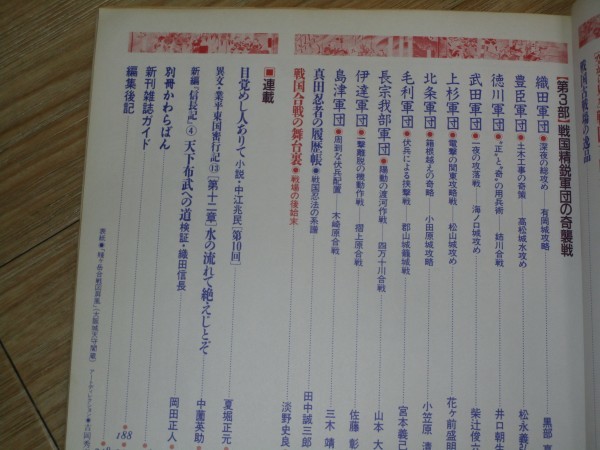 戦国古戦場の逸品
【第3部】戦国精説軍団の奇襲戦
織田軍団●深夜の総攻め――有岡城攻略
豊臣軍団●土木工事の奇策――高松城水攻め 松永義弘
徳川軍団●“正”と“奇”の用兵術――姉川合戦 井口朝生
武田軍団●一夜の攻落戦――海ノ口城攻め 柴辻俊六
上杉軍団●電撃の関東攻略戦――松山城攻め 花ヶ前盛明
北条軍団●箱根越えの奇略――小田原城攻略 小笠原清
毛利軍団●伏兵による挟撃戦――郡山城籠城戦 宮本義己
長宗我部軍団●陽動の渡河作戦――四万十川合戦 山本大
伊達軍団●一撃離脱の機動作戦――摺上原合戦 佐藤彰
島津軍団●周到な伏兵配置――木崎原合戦 三木靖
真田忍者の履歴帳●戦国忍法の系譜 田中誠三郎
戦国合戦の舞台裏●戦場の後始末 淡野史良
■連載
目覚めし人ありて 小説・中江兆民〔第10回〕 夏堀正元
異文・業平東国密行記⑬〔第十二章〕水の流れて絶えじとぞ 中薗英助
新編『信長記』④天下布武への道 検証・織田信長 岡田正人
別冊かわらばん
新刊雑誌ガイド
編集後記 188
表紙●「賤ヶ岳合戦図屏風」（大阪城天守閣蔵）